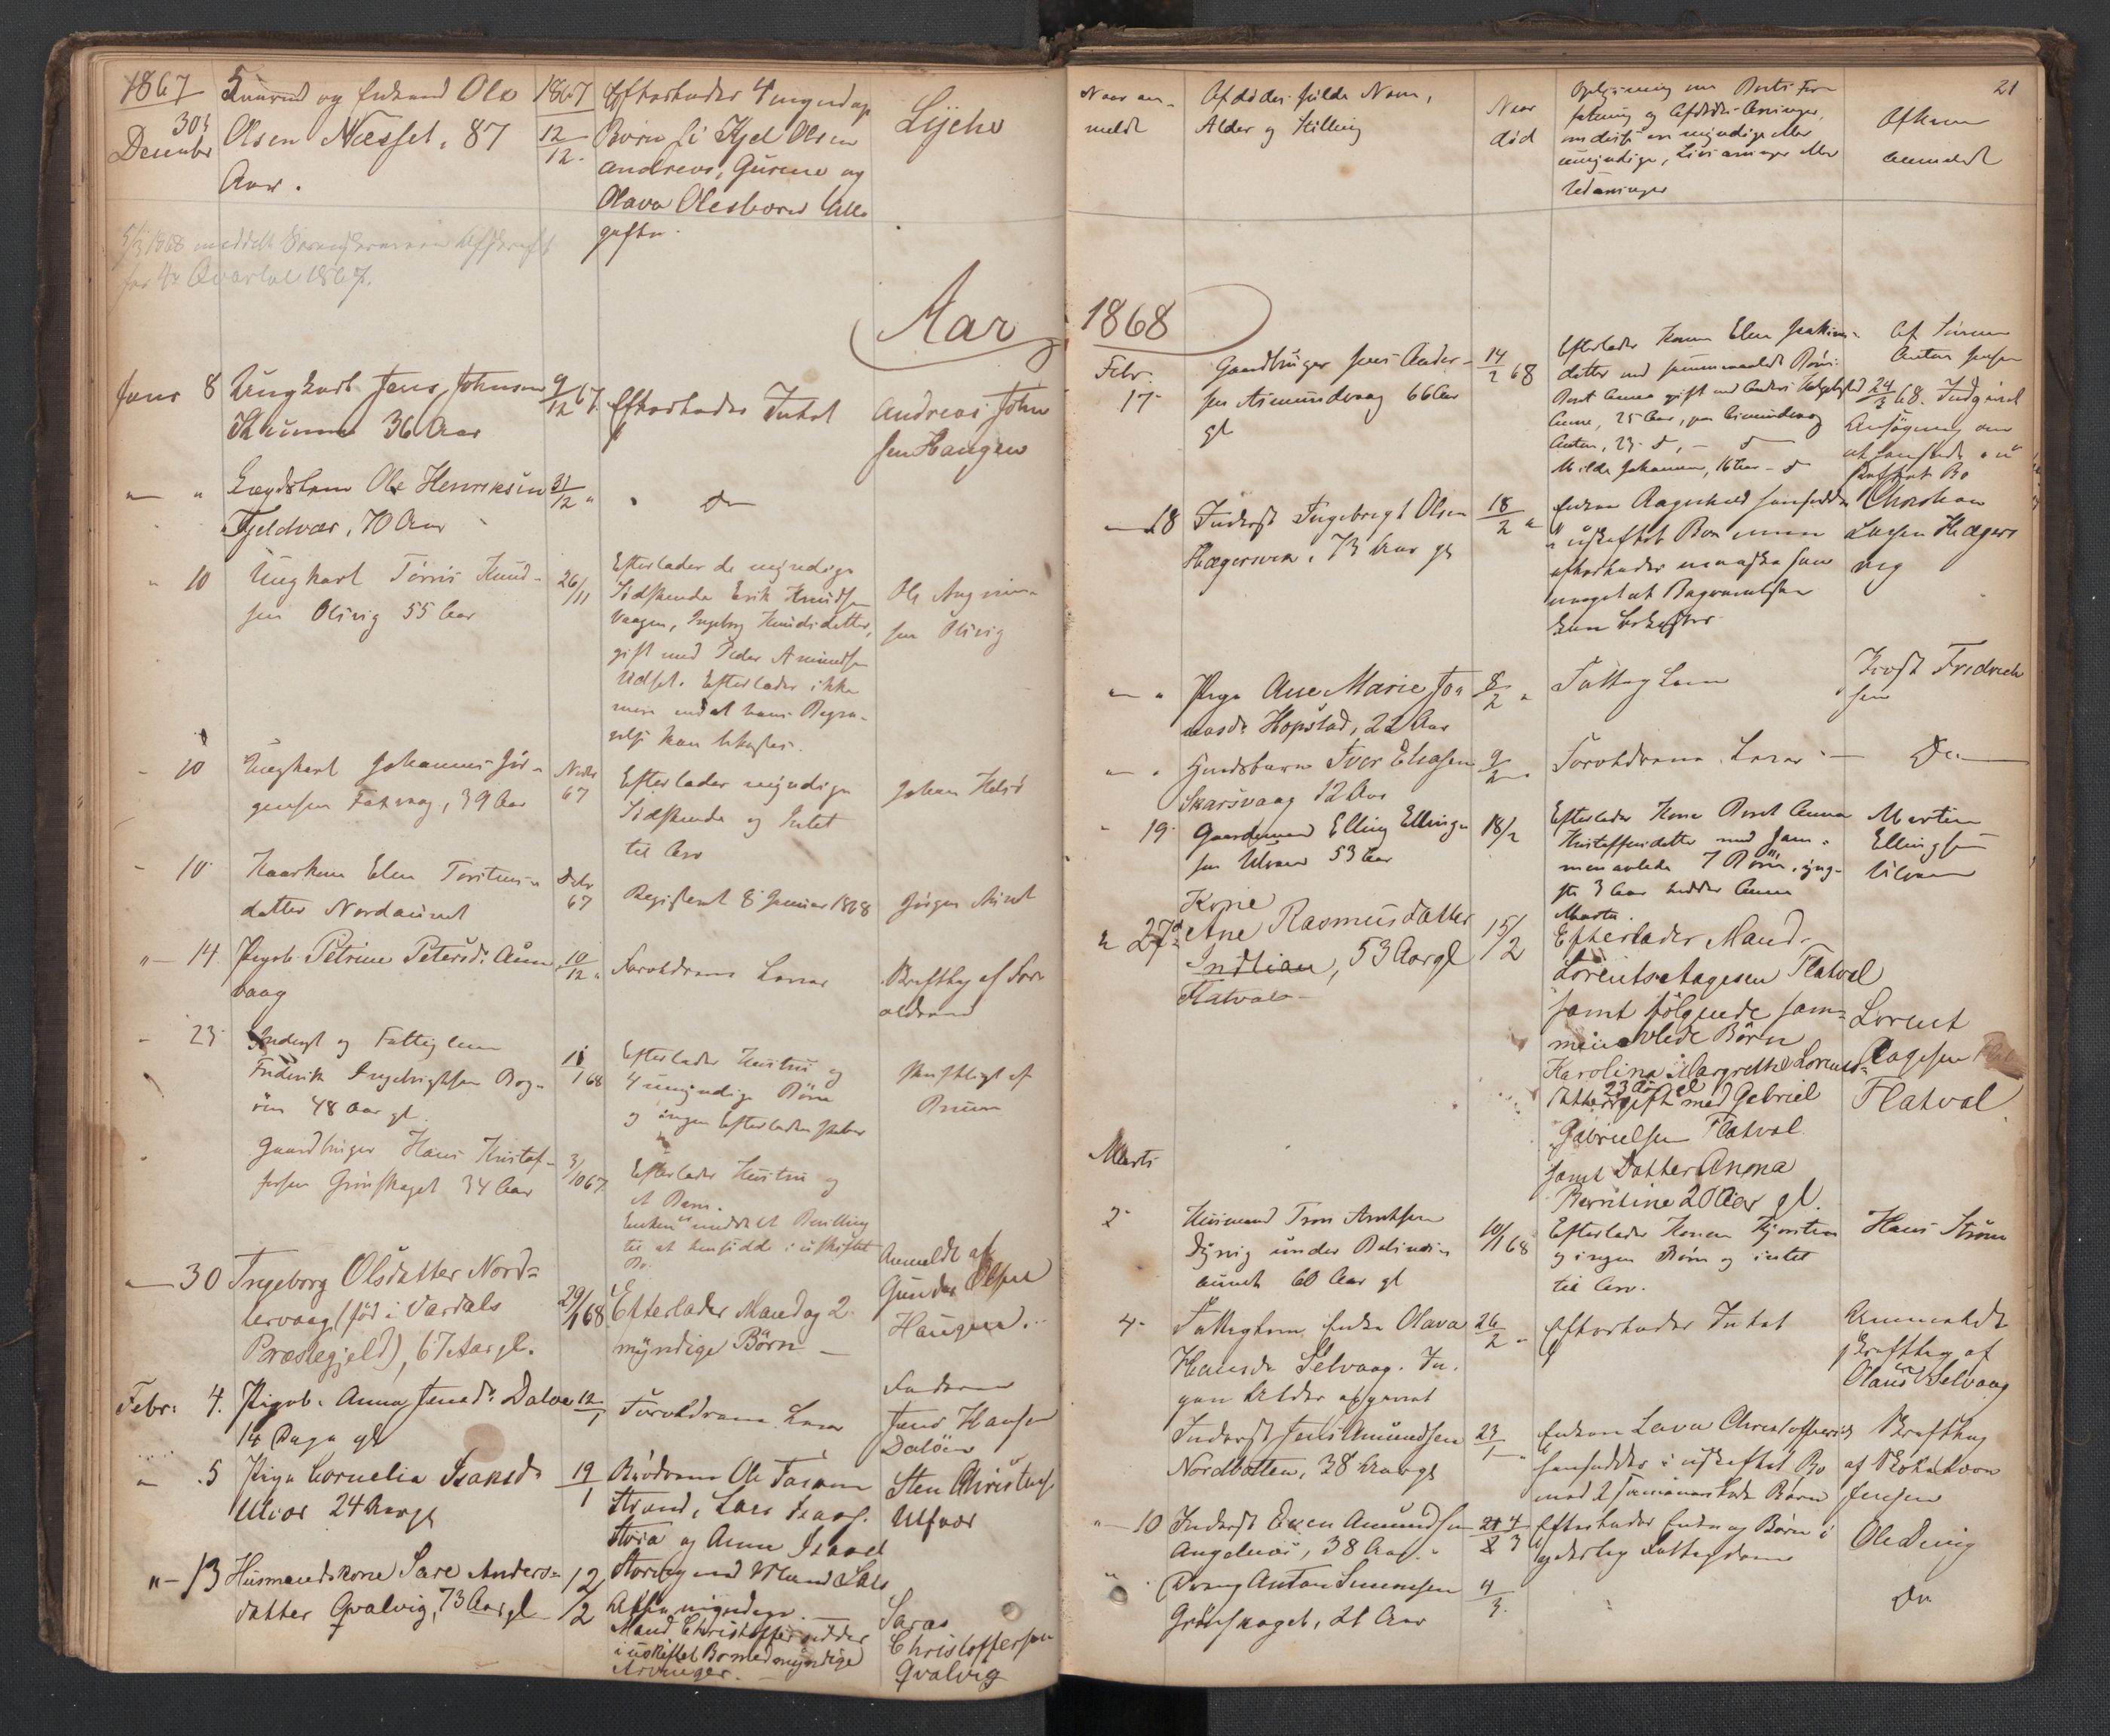 1867
30te December
og Enkemand Ole
Olsen Næsset, 87
Aar.
1867
12/12
Efterlader 4 myndige
Børn Kjel Olsen
Andreas, Gurine og
Olava Olesbørn Alle
gifte.
Lijehr
5/3 1868 meddelt Sorenskriveren Afskrift
for 4de Qvartal 1867.
Aar
Janr 8
Ungkarl Jens Johnsen
36 Aar
9/12 67.
Efterlader Intet
Andreas John
sen Haugen
" "
Lægdslem Ole Henriksen
Fjeldvær, 70 Aar
31/12 "
Do
" 10
Ungkarl Tørris Knud-
sen Olsvig 55 Aar
26/11
Efterlader de myndige
Sødskende Erik Knudsen
Vaagen, Ingeborg Knudsdatter,
gift med Peder Amundsen
Udset. Efterlader ikke
mere end at hans Begra-
velse kan bekostes.
Ole
sen Olsvig
- 10
Ungkarl Johannes Jør-
gensen Faxvaag, 39 Aar
Novbr
67
Efterlader myndige
Sødskende og Intet
til Arv
Johan
- 10
Elen Torstens-
datter Nordaunet
Debr
67
Registeret 8 Januar 1868
Jørgen
"- 14
Pigeb. Petrine Petersd. Aun
vaag
10/12 "
Forældrene Arver
Skriftlig af For-
ældrene
- 23
Inderst og Fattiglem
Friderik Ingebrigtsen Bog-
øen 48 Aar gl.
11/1 68
Efterlader Hustru og
4 umyndige Børn
og ingen Efterladenskaber
Skriftligt af
Bruun
Gaardbruger Hans Kristof-
fersen Grønskaget 34 Aar
3/10 67.
Efterlader Hustru og
et Barn.
Enken meddelt Bevilling
til at hensidde i uskiftet
Bo.
"- 30
Ingeborg Olsdatter Nord=
lervaag (fød i Vardals
Præstegjeld), 67 Aar gl.
29/1 68
Efterlader Mand og 2
myndige Børn -
Anmeldt af
Gunder Olsen
Haugen.
Febr: 4.
Pigeb. Anna Jensd. Daløe
14 Dage gl
12/1
Forældrene Arver
Faderen
Jens Hansen
Daløen
" 5
Pige Cornelia Isaksd.
Ulvær 24 Aar gl
19/1
Brødrene Ole
Strand, Lars Isaks.
Storø og Anna Isaksd
Storø med Mand Lars
myndige.
Sten Christens.
Ulfvær
"- 13
Husmandskone Sare Anders=
datter Qvalvig, 73 Aar gl
12/2
Mand Christoffer sidder
i uskiftet Bo med myndige
Arvinger.
Saras
Christoffersen
Qvalvig
21
Naar an-
meldt
Afdødes fulde Navn,
Alder og Stilling
Naar
død
Oplysning om Boets For-
fatning og Afdødes Arvinger,
om disse er myndige eller
umyndige, Livsarvinger eller
Udarvinger
Af hvem
anmeldt
1868
Febr.
17
Gaardbruger Jens Ander-
sen Asmundvaag 66 Aar
gl
14/2 68
Efterlader Konen Elen Joakims-
datter med sammenavlede Børn:
Beret Anna gift med Anders
Anne, 25 Aar, paa Asmundvaag
Anton, 23 D, - D
Milde Johanna, 16 Aar - D
Af Sønnen
Anton Jensen
24/2 68. Indgivet
Ansøgning om
at hensidde i u
skiftet Bo
- 18
Inderst Ingebrigt Olsen
Hægervik, 73 Aar gl
18/2 "
Enken Ragnhild hensidder
i uskiftet Bo men
efterlader maaske saa
meget at Begravelsen
kan bekostes
Christian
Larsen Hæger
vig
" "
Pige Ane Marie Jo
nasd. Hopstad, 22 Aar
8/2 "
Fattiglem
Frost Fredrich
sen
" "
Iver Eliasen
Skarsvaag 12 Aar
9/2
Forældrene Arver -
Do
" 19
Gaardmand Elling Elling-
sen Ulvan 53 Aar
18/2
Efterlader Kone Beret Anna
Kristoffersdatter med sam-
menavlede 7 Børn, yng-
ste 3 Aar hedder Anna
Marta.
Martin
Ellingsen
Ulvan
" 27de
Kone
Ane Rasmusdatter
Indlian, 53 Aar gl
Flatval
15/2
Efterlader Mand
Lorents Aagesen Flatval
samt følgende sam=
menavlede Børn
Karolina Margrethe Lorents=
datter 23 Aar gl gift med Gabriel
Gabrielsen Flatval
samt Datter Anna
Berntine 20 Aar gl.
Lorent
Aagesen
Flatval
Marts
2
Husmand Tron Arntsen
Dyrvig under
60 Aar gl
10/1 68
Efterlader Konen Kjersten
og ingen Børn og intet
til Arv.
Hans Strøm
4
Fattiglem Enke Olava
Hansd. Selvaag. In-
gen Alder opgivet
26/2 "
Efterlader Intet
Anmeldt
skriftlig af
Olaus Selvaag
Inderst Jens Amundsen
Nordbotten, 38 Aar gl
23/1
Enken Lava Christoffersd.
hensidder i uskiftet Bo
med 2 sammenavlede Børn
Skriftlig
af
Jensen
"- 10
Inderst Even Amundsen
Angelvær, 38 Aar
4/3
Efterlader Enke og Børn i
yderlig Fattigdom
Ole Duvig
"
Dreng Anton Simonsen
Grønskaget, 21 Aar
4/3.
Do